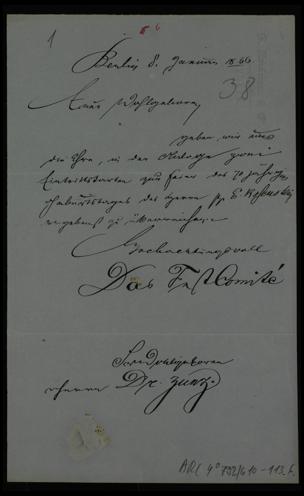 1
6
Berlin 8. Januar 1866
38
Euer Wohlgeboren,
geben wir uns
die Ehre, in der Anlage zwei
Eintrittskarten zur Feier des 70 jährigen
Geburtstages des Herrn
ergebenst zu überreichen.
Hochachtungsvoll
Das FestComité
Sr. Wohlgeboren
Herrn Dr. Zunz.
ARC 4° 792/G10-113.1